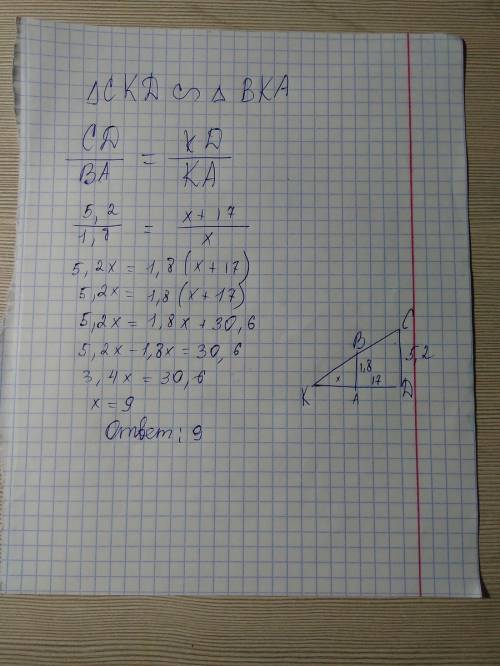 △CKD ∽ △ BKA
CD/BA = KD/KA
5,2/1,8 = x+17/x
5,2x = 1,8(x+17)
5,2x = 1,8(x+17)
5,2x = 1,8x+30,6
5,2x-1,8x=30,6
3,4x = 30,6
x = 9
Ответ: 9
C
B
5,2
1,8
K
x
17
A
D